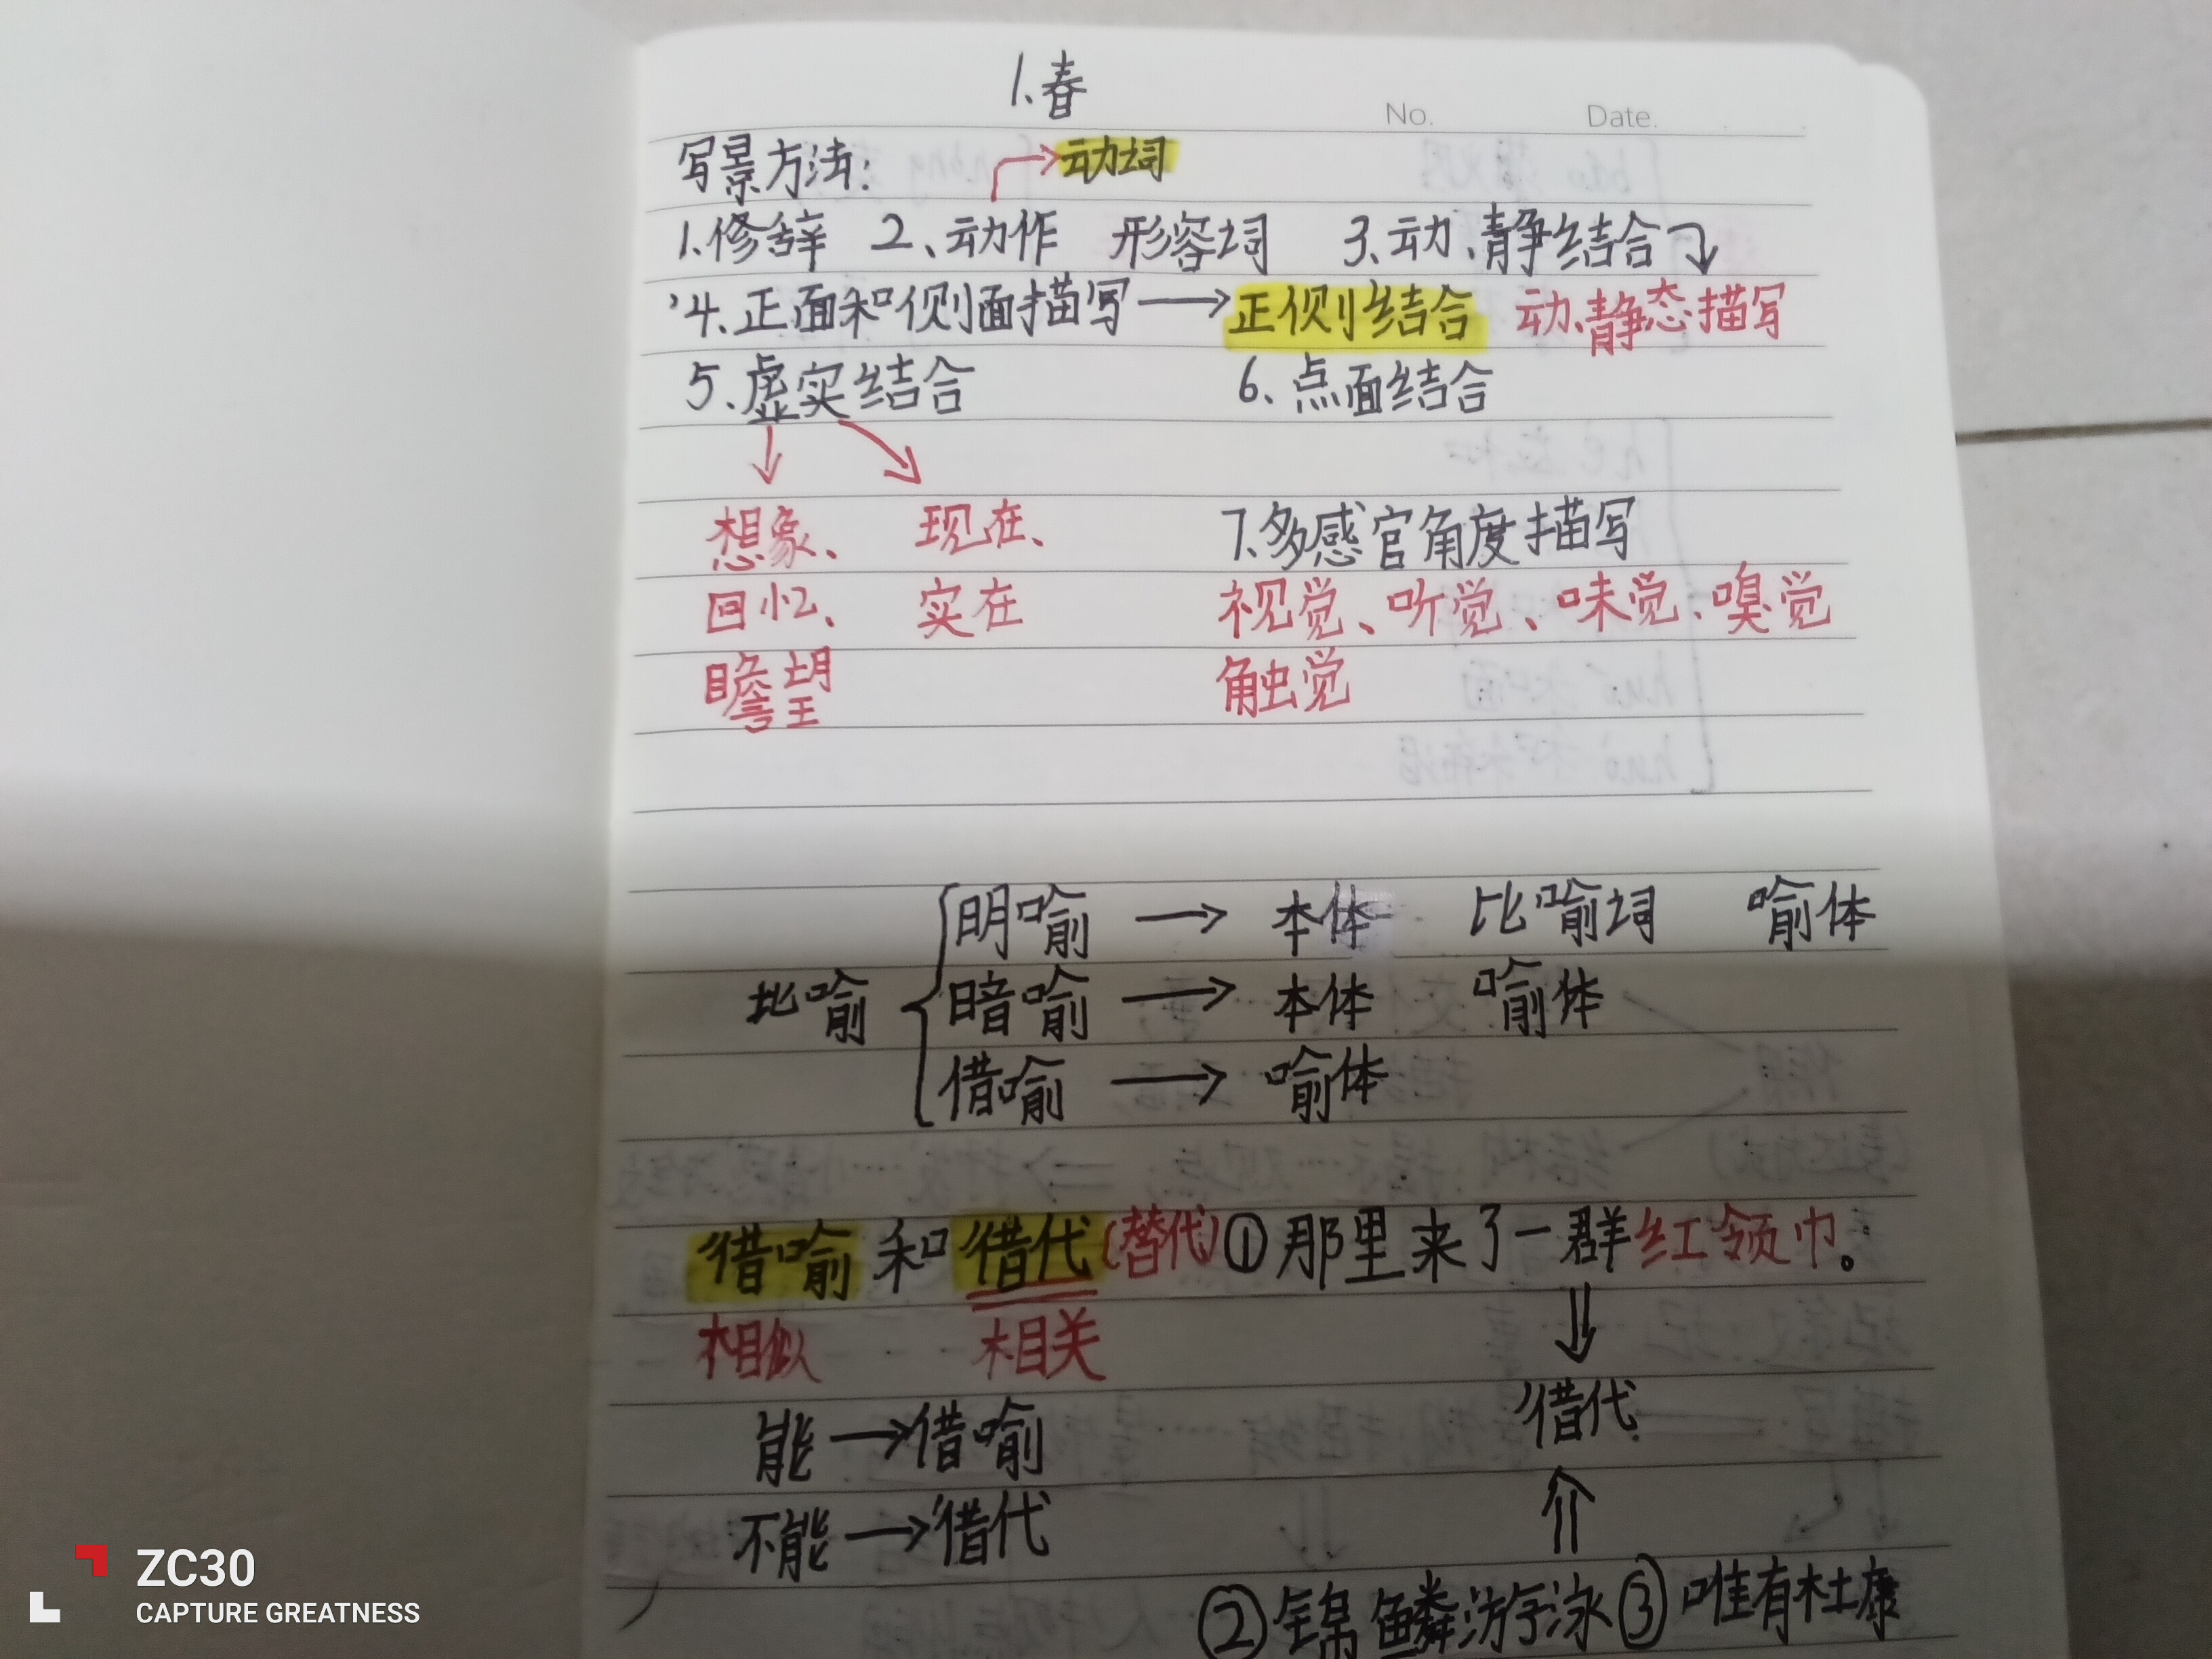 1.春
No. Date.
写景方法: →动词
1.修辞 2、动作 形容词 3.动、静结合
4.正面和侧面描写→正侧结合 动、静态描写
5、虚实结合 6、点面结合
想象、 现在、 7.多感官角度描写
回忆、 实在 视觉、听觉、味觉、嗅觉
瞻望 触觉
明喻 → 本体 比喻词 喻体
比喻 暗喻 → 本体 喻体
借喻 → 喻体
借喻和借代(替代)①那里来了一群红领巾。
相似 相关
能→借喻 借代
不能→借代
②锦鳞游泳③唯有杜康
ZC30
CAPTURE GREATNESS